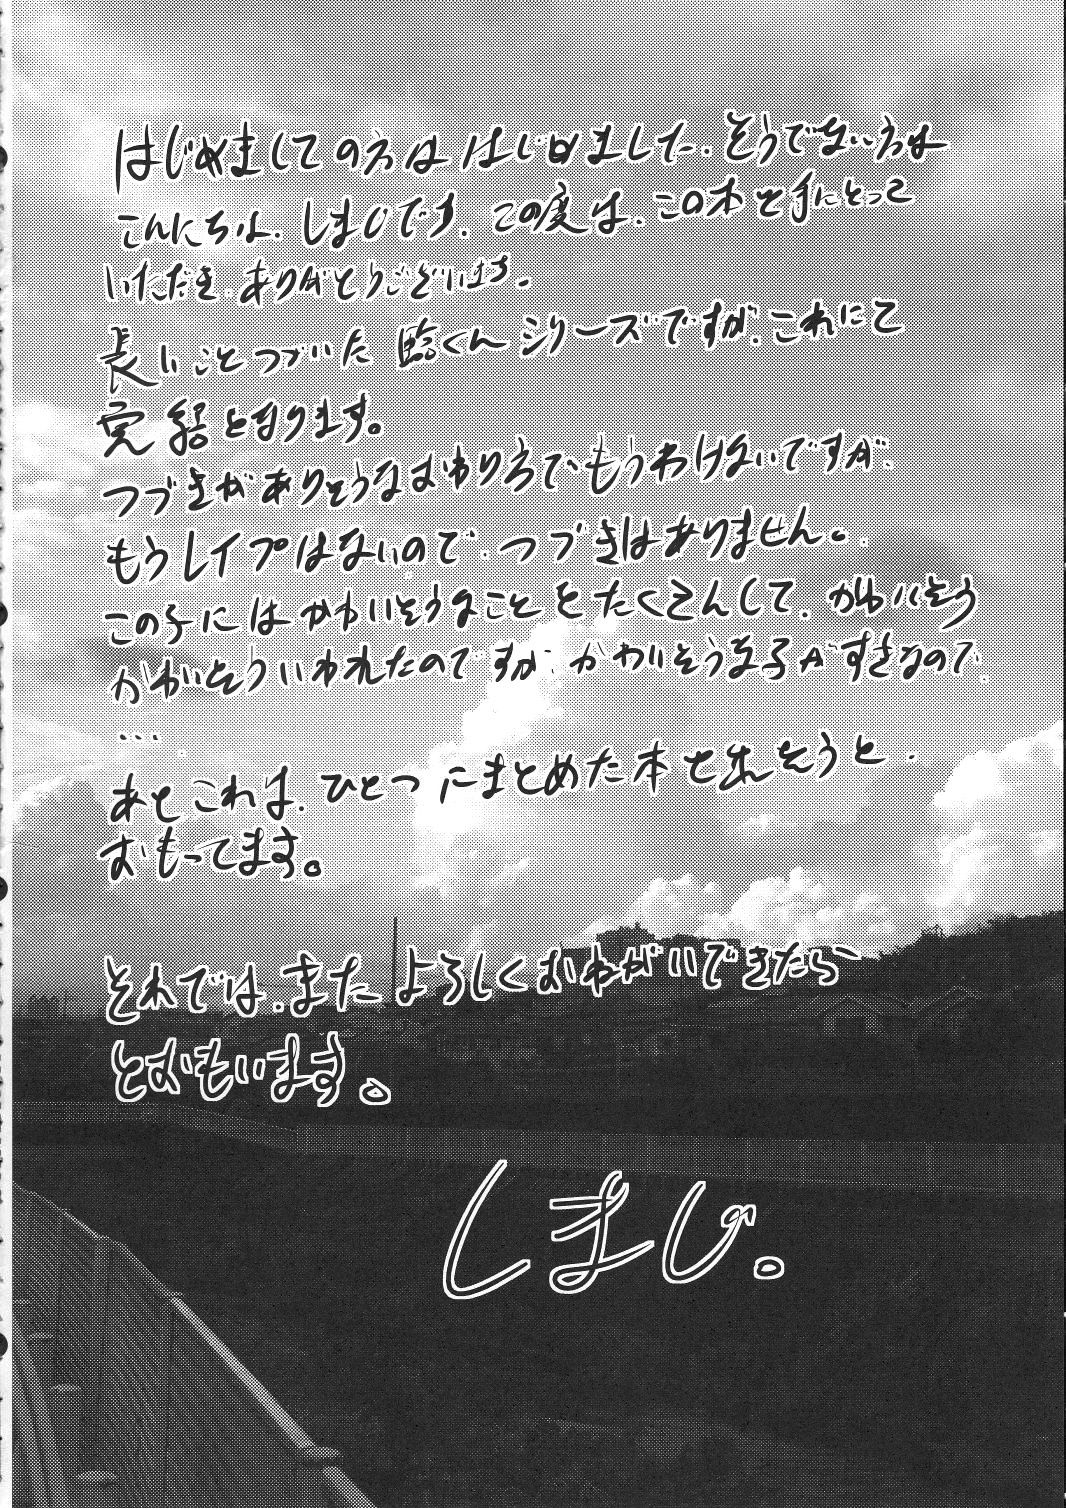 はじめましての方は はじめました. そうでない方は
こんにちは. しまじです. この度は. この本を手にとって
いただき. ありがとうございます.
長いことつづいた 臨くんシリーズですが. これにて
完結となります。
つづきがありそうなおわり方でもうしわけないですが.
もうレイプはないので. つづきはありません。
この子にはかわいそうなことをたくさんして. かわいそう
かわいそういわれたのですが. かわいそうな子がすきなので.
...
あと これは. ひとつにまとめた本を出そうと.
おもってます。
それでは. また よろしくおねがいできたら
とおもいます。
しまじ。